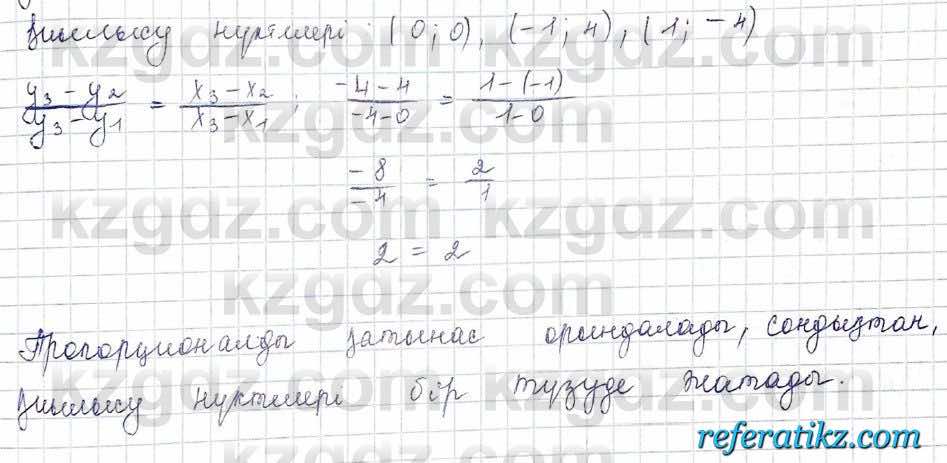 Қиылысу нүктелері (0; 0), (-1; 4), (1; -4)
(y₃ - y₂)/(y₃ - y₁) = (x₃ - x₂)/(x₃ - x₁); (-4-4)/(-4-0) = (1-(-1))/(1-0)
-8/-4 = 2/1
2 = 2
Пропорционалды қатынас орындалады, сондықтан,
қиылысу нүктелері бір түзуде жатады.
kzgdz.com
referatikz.com